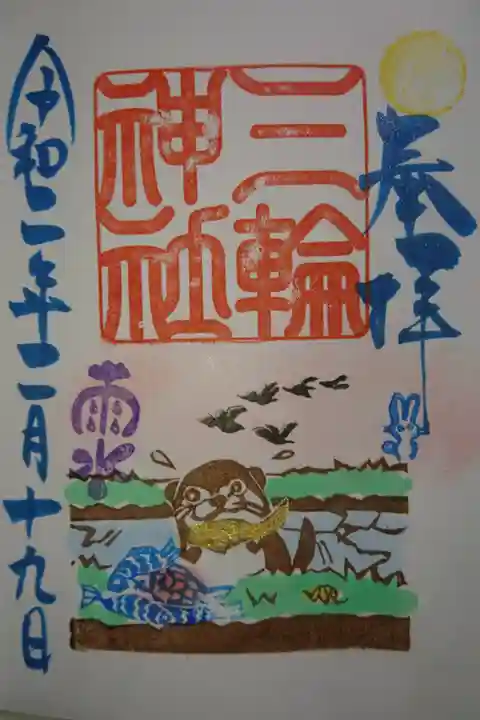 奉拝
三輪
神社
雨水
令和二年二月十九日